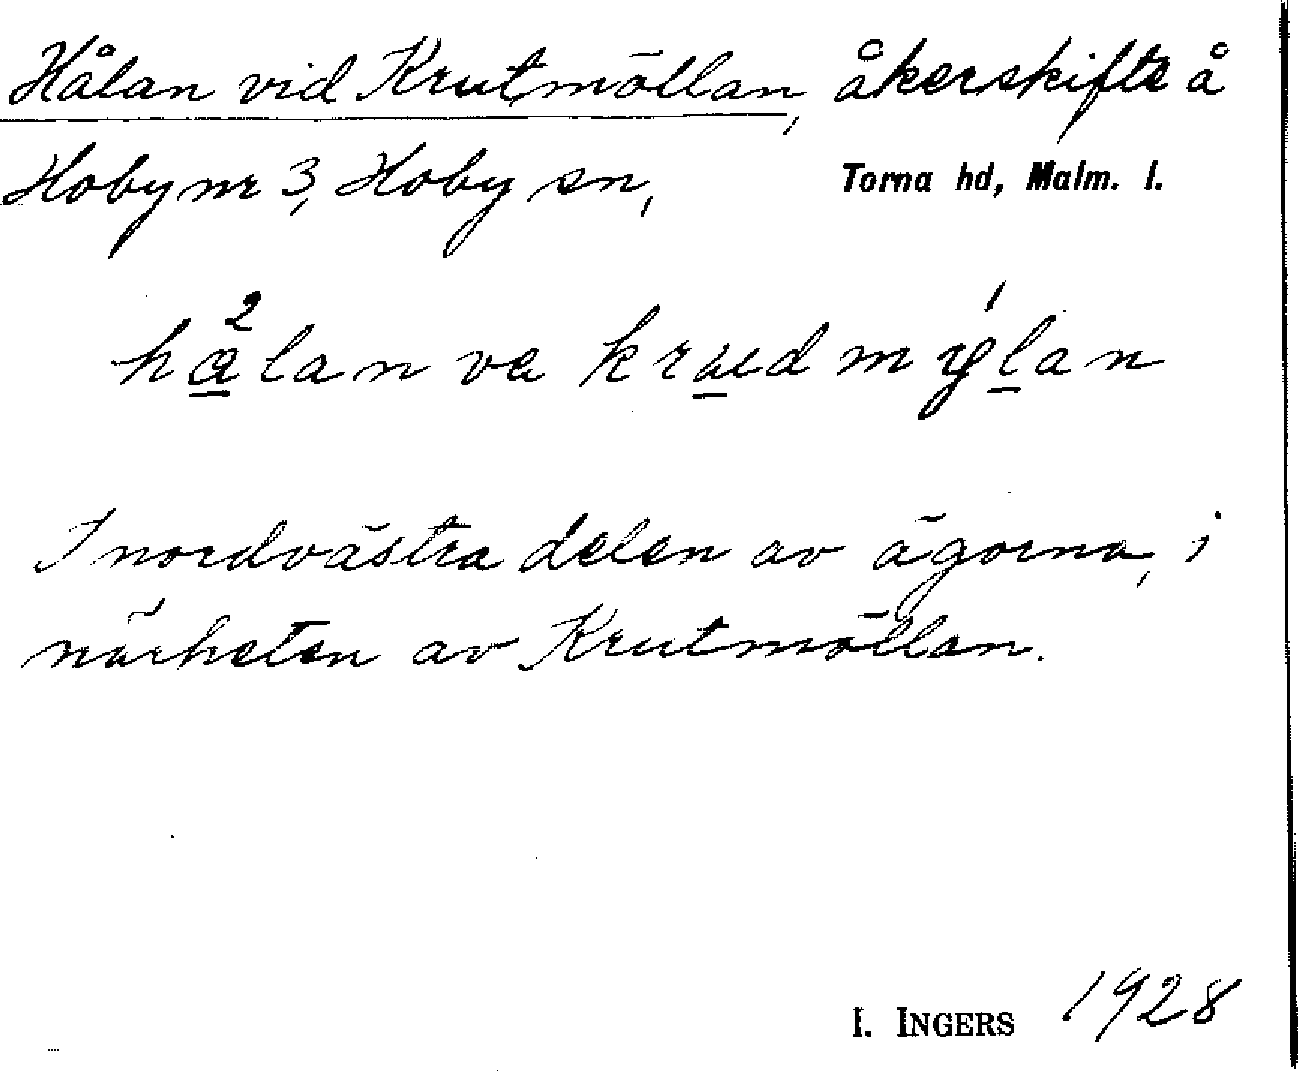 Hålan vid Krutmöllan, åkerskifte å
Hoby nr 3, Hoby sn, Torna hd, Malm. l.
hå²lan va kruedmýlan
I nordvästra delen av ägorna, i
närheten av Krutmöllan.
I. INGERS 1928